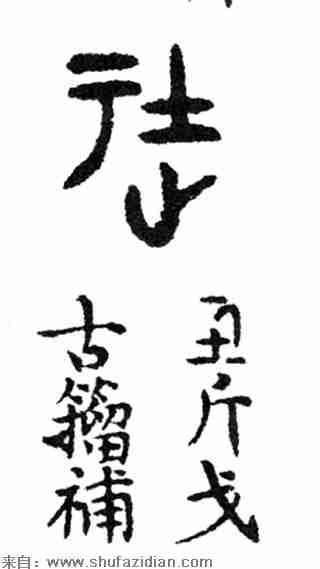 丑斤戈
古籀補
来自：www.shufazidian.com